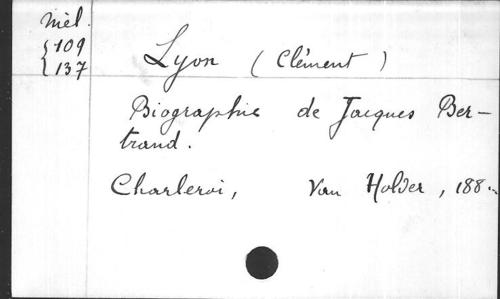 Mél.
109
137
Lyon (Clément)
Biographie de Jacques Ber-
trand.
Charleroi, Van Holder, 188